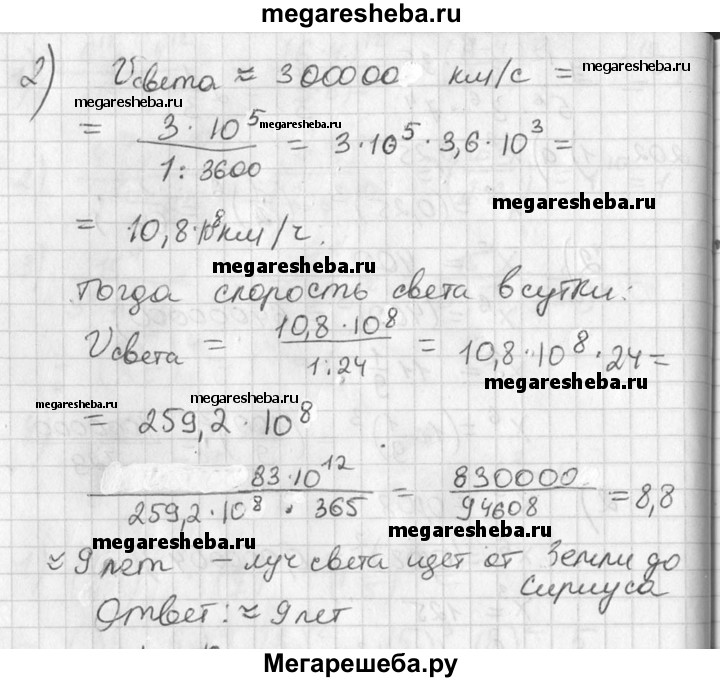 megaresheba.ru
2) Vсвета ≈ 300000 км/с = megaresheba.ru
megaresheba.ru
= 3·10^5 / 1:3600 = 3·10^5·3,6·10^3 =
megaresheba.ru
megaresheba.ru
= 10,8·10^8 км/ч.
megaresheba.ru
Тогда скорость света в сутки:
Vсвета = 10,8·10^8 / 1:24 = 10,8·10^8·24 =
megaresheba.ru
megaresheba.ru megaresheba.ru
= 259,2·10^8
83·10^12 / 259,2·10^8 · 365 = 830000 / 94608 = 8,8
megaresheba.ru megaresheba.ru
≈ 9 лет – луч света идет от Земли до
Сириуса
Ответ: ≈ 9 лет
megaresheba.ru
Мегарешеба.ру